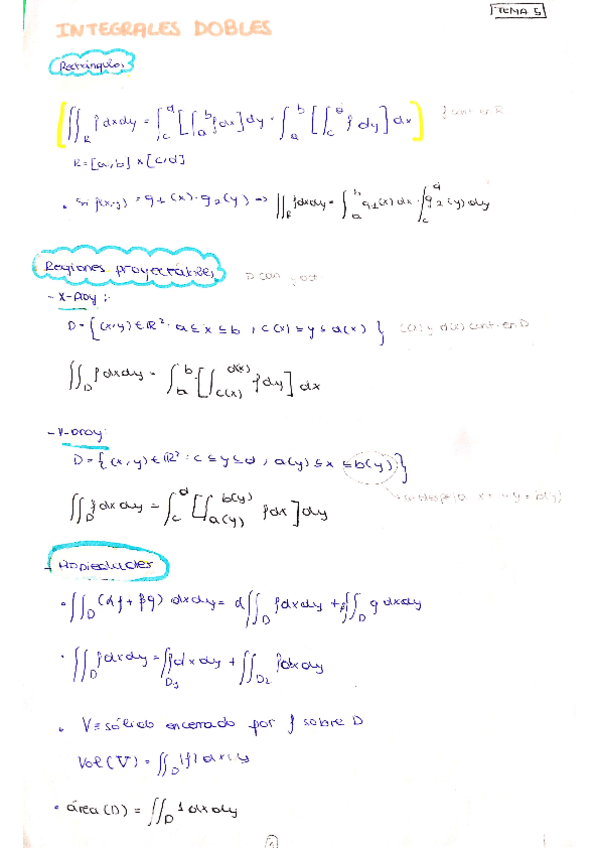 TEMA 5
INTEGRALES DOBLES
Rectángulo:
∬_R f dxdy = ∫_c^d [∫_a^b f dx] dy = ∫_a^b [∫_c^d f dy] dx f cont en R
R=[a,b]×[c,d]
• Si f(x,y) = g1(x)·g2(y) => ∬_R f dxdy = ∫_a^b g1(x) dx · ∫_c^d g2(y) dy
Regiones proyectables D con
- X-Proy:
D={(x,y)∈ℝ²: a≤x≤b, c(x)≤y≤d(x)} c(x) y d(x) cont. en D
∬_D f dxdy = ∫_a^b [∫_{c(x)}^{d(x)} f dy] dx
- Y-proy:
D={(x,y)∈ℝ²: c≤y≤d, a(y)≤x≤b(y)}
∬_D f dxdy = ∫_c^d [∫_{a(y)}^{b(y)} f dx] dy
- Propiedades
• ∬_D (αf + βg) dxdy = α∬_D f dxdy + β∬_D g dxdy
• ∬_D f dxdy = ∬_{D1} f dxdy + ∬_{D2} f dxdy
• V≡sólido encerrado por f sobre D
Vol(V) = ∬_D |f| dxdy
• área(D) = ∬_D 1 dxdy